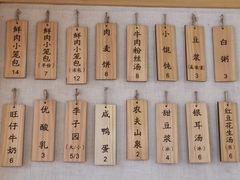 鲜肉小笼包
14
鲜肉小笼包
半份
7
鲜肉小笼包
12
肉麦饼
6
牛肉粉丝汤
8
小馄饨
6
豆浆
3
白粥
3
旺仔牛奶
6
优酸乳
3
李子园
大/小
5/3
咸鸭蛋
2
农夫山泉
2
甜豆浆
4
银耳汤
6
红豆花生汤
6